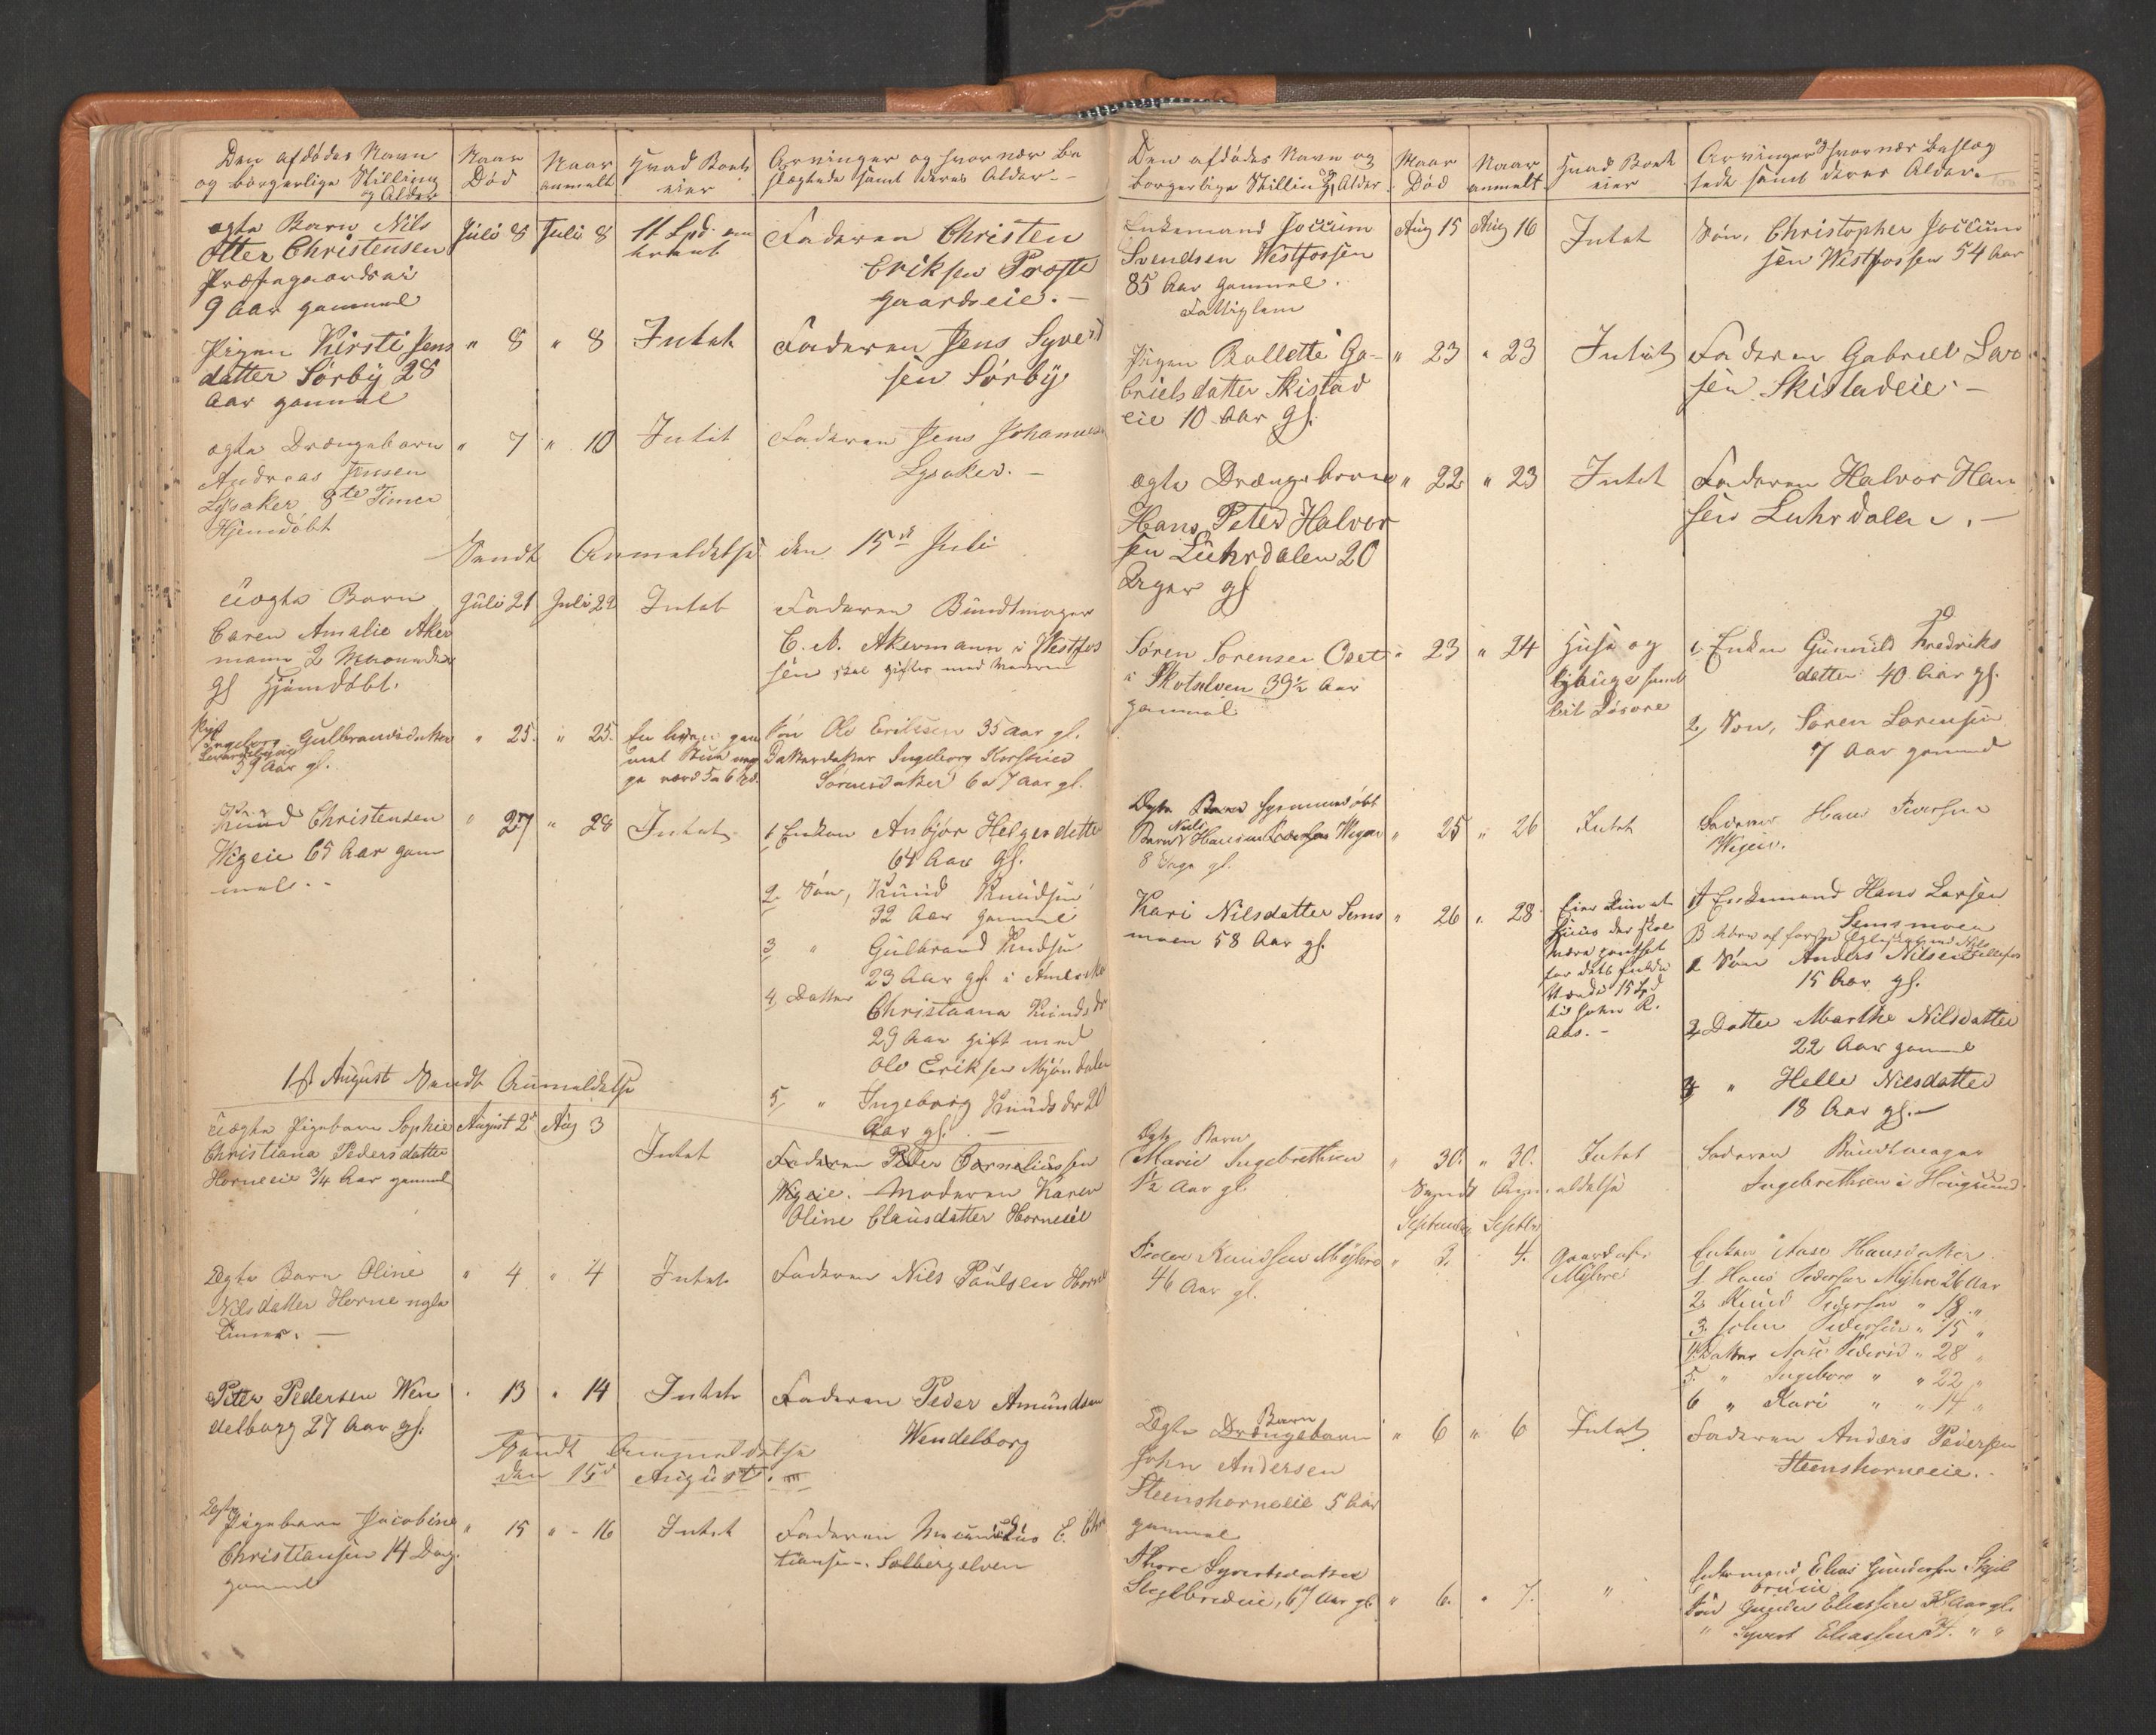 Den afdødes Navn
og borgerlige Stilling
og Alder
Naar
Død
Naar
anmeldt
Hvad Boet
eier
Arvinger og hvor nær be
slægtede samt deres Alder.-
ægte Barn Nils
Otter Christensen
Præstegaardseie
9 Aar gammel
Juli 8
Juli 8
11 Spd
Faderen Christen
Eriksen Præste
gaardseie.-
Pigen Kirsti Jens
datter Sørby 28
Aar gammel
" 8
" 8
Intet
Faderen Jens Syvert
sen Sørby
ægte Drængebarn
Andreas Jensen
Lysaker 8te Timer
Hjemdøbt
" 7
" 10
Intet
Faderen Jens Johannes
Lysaker.-
Sendt Anmeldelse den 15de Juli
uægte Barn
Caren Amalie Aker
mann 2 Maaneder
gl Hjemdøbt.
Juli 21
Juli 22
Intet
Faderen Bundtmager
C. A. Akermann i Westfos
sen skal giftes med Moderen
Ingeborg Gulbrandsdatter
59 Aar gl.
" 25.
" 25.
En liden gam
mel Stue
værd 5 a 6 Spd.
Søn Ole Eriksen 35 aar gl.
Datterdatter Ingeborg Kirstine
Sørensdatter 6 a 7 Aar gl.
Knud Christensen
Wigeie 65 Aar gam
mel.-
" 27
" 28
Intet
1 Enken Anbjør Helgesdatter
64 Aar gl.
2. Søn, Knud Knudsen
32 Aar gammel
3 " Gulbrand Knudsen
23 Aar gl. i Amerika
4, Datter
Christiana Knudsdr
29 Aar gift med
Ole Eriksen Mjøndalen
5, " Ingeborg Knudsdr 20
Aar gl. -
1st August Sendt Anmeldelse
uægte Pigebarn Sophie
Christiana Pedersdatter
Horneeie 3/4 Aar gammel
August 2d
Aug 3
Intet
Faderen Peder Corneliussen
Wigeie. Moderen Karen
Oline Clausdatter Horneeie
Ægte Barn Oline
Nilsdatter Horne nogle
Timer. -
" 4
" 4
Intet
Faderen Nils Paulsen Horne
Peter Pedersen Wen
delborg 27 Aar gl.
" 13
" 14
Intet
Faderen Peder Amundsen
Wendelborg
Sendt Anmeldelse
den 15d August.
Ægte
Pigebarn Jacobine
Christiansen 14 Dag.
gammel
" 15
" - 16
Intet
Faderen C. Chr
tiansen. Solbergelven
Den afdødes Navn og
borgerlige Stilling og Alder
Naar
Død
Naar
anmeldt
Hvad Boet
eier
Arvinger og hvor nær beslæg
tede samt deres Alder.
Enkemand Jocum
Svendsen Westfossen
85 Aar gammel.
Fattiglem
Aug 15
Aug 16
Intet
Søn, Christopher Jocum
sen Westfossen 54 Aar
Pigen Bollette Ga-
brielsdatter Skistad
eie 10 Aar gl.
" 23
" 23
Intet
Faderen Gabriel
sen Skistadeie.-
ægte Drængebarn
Hans Peter Halvor
sen Luhrdalen 20
Uger gl
" 22
" 23
Intet
Faderen Halvor Han
sen Luhrdalen.-
Søren Sørensen Oset
i Skotselven 39½ Aar
gammel
" 23
" 24
Huse og
samt
lidt Løsøre
1. Enken Gunnild Fredriks
datter 40 Aar gl.
2, Søn, Søren Sørensen
7 Aar gammel
Ægte hjemmedøbt
Barn Nils Wigeie
8 Dage gl.
" 25
" 26
Intet
Faderen Hans Iversen
Wigeie.
Kari Nilsdatter Sems
moen 58 Aar gl.
" 26
" 28
Eier kun et
Huus der skal
være pantsat
for dets fulde
Værdi 15 Spd
til John R.
Aas.-
A Enkemand Hans Larsen
Semsmoen
B Børn af første Ægteskab med Nils
1 Søn Anders Nilsen
15 Aar gl.
2, Datter Marthe Nilsdatter
22 Aar gammel
3 " Helle Nilsdatter
18 Aar gl.-
Ægte Barn
Marie Ingebrethsen
½ Aar gl.
" 30.
" 30.
Intet
Faderen Bundtmager
Ingebrethsen i Hougsund.
Sendt Anmeldelse
September
Septbr
Peder Knudsen Myhre
46 Aar gl.
" 3.
4.
Gaard
Myhre
Enken Aase Hansdatter
1. Hans Pedersen Myhre 26 Aar
2. Knud Pedersen " 18 "
3. John Pedersen " 15 "
4 Datter Aase Pedersd " 28 "
5. " Ingeborg " " 22 "
6 " Kari " " 14 "
Ægte Drængebarn
Barn
John Andersen
Steenshorneeie 5 Aar
gammel
" 6
" 6
Intet
Faderen Anders Pedersen
Steenshorneeie.
Thore Syvertsdatter
67 Aar gl.
" 6.
" 7.
"
Enkemand Elias Gundersen
Søn Gunder Eliassen Aar gl.
" Syvert Eliassen " "